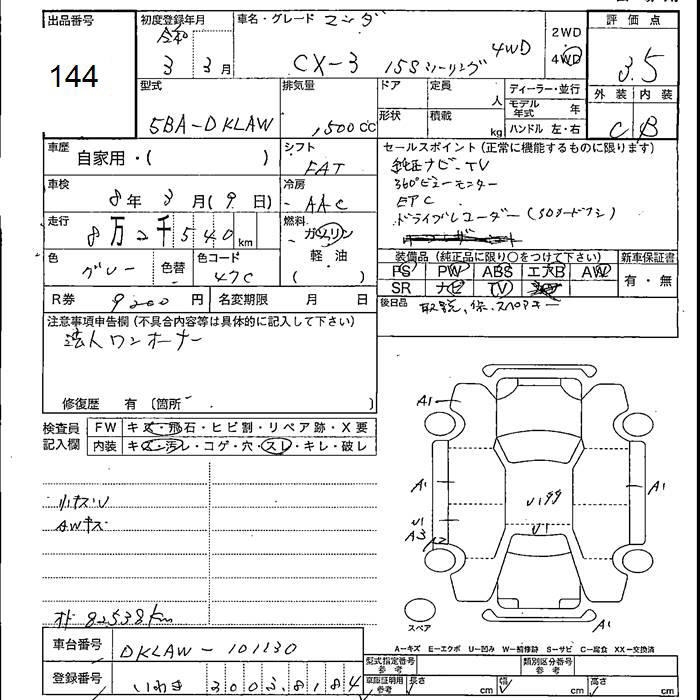 出品番号
144
初度登録年月
令和
3 3月
車名・グレード マツダ
CX-3 15Sツーリング 4WD
2WD
4WD
評価点
3.5
外装 内装
C B
型式
5BA-DKLAW
排気量
1,500cc
ドア
定員
人
形状
積載
kg
ディーラー・並行
モデル年式 年
ハンドル 左・右
車歴
自家用・( )
シフト
FAT
セールスポイント (正常に機能するものに限ります)
純正ナビ・TV
360°ビューモニター
ETC
ドライブレコーダー
車検
8年3月(9日)
冷房
AAC
走行
8万2千540km
燃料
ガソリン
軽油
( )
色
グレー
色替
色コード
47C
装備品 (純正品に限り○をつけて下さい)
新車保証書
PS PW ABS エアB AW
有・無
SR ナビ TV
R券
9200円
名変期限 月 日
後日品
取説、保、スペアキー
注意事項申告欄 (不具合内容等は具体的に記入して下さい)
法人ワンオーナー
修復歴 有 〔箇所 〕
検査員
記入欄
FW キズ・飛石・ヒビ割・リペア跡・X要
内装 キズ・汚れ・コゲ・穴・スレ・キレ・破レ
小キズU
AWキズ
オド 82538km
A1
A1
U1
A3 A2
U199
U1
A1
A1
スペア
A-キズ E-エクボ U-凹み W-補修跡 S-サビ C-腐食 XX-交換済
車台番号
DKLAW-101130
登録番号
いわき 300 3 8184
型式指定番号
参考
類別区分番号
参考
車庫証明用
参考
長さ cm
幅 cm
高さ cm